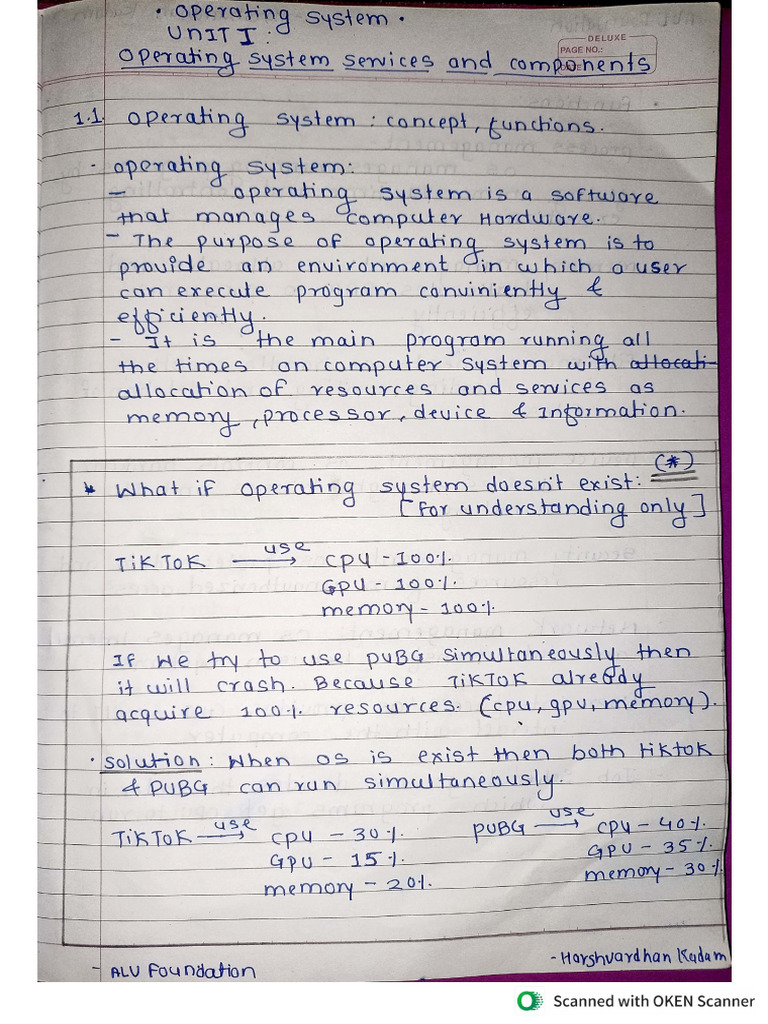 • Operating System •
UNIT I :
DELUXE
PAGE NO.:
Operating System Services and components
1.1. Operating System : concept, functions.
• Operating System:
- Operating System is a software
that manages Computer Hardware.
- The purpose of Operating System is to
provide an environment in which a user
can execute program conviniently &
efficiently.
- It is the main program running all
the times on computer system with allocati-
allocation of resources and services as
memory, processor, device & Information.
(*)
* What if Operating System doesn't exist:
[For understanding only]
TikTok use → CPU - 100%.
GPU - 100%.
memory - 100%
If we try to use PUBG simultaneously then
it will crash. Because TikTok already
acquire 100% resources. (cpu, gpu, memory).
• Solution : When OS is exist then both tiktok
& PUBG can run simultaneously.
TikTok use → CPU - 30%. PUBG use → CPU - 40%.
GPU - 15%. GPU - 35%.
memory - 20%. memory - 30%
- ALU Foundation - Harshvardhan Kadam
Scanned with OKEN Scanner